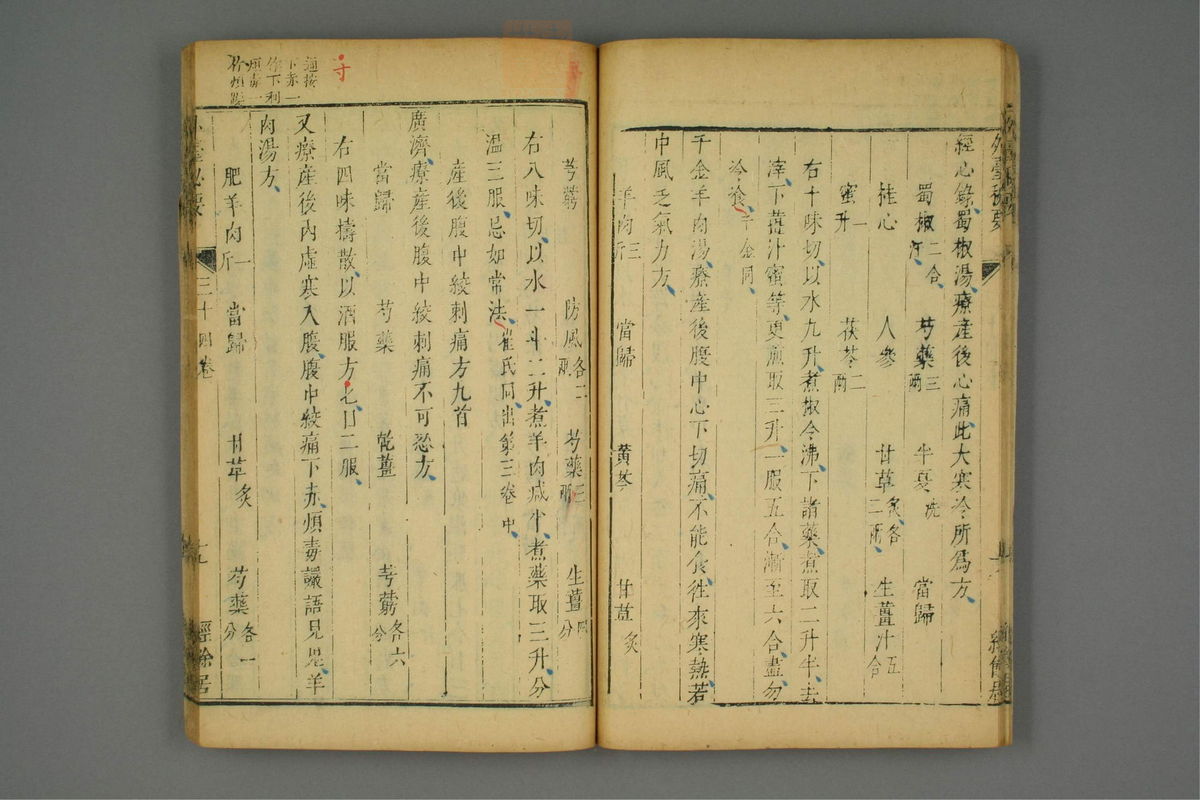 外臺秘要
經心錄蜀椒湯療產後心痛此大寒冷所爲方
蜀椒二合汗 芍藥三兩 半夏洗 當歸
桂心 人參 甘草炙各二兩 生薑汁五合
蜜一升 茯苓二兩
右十味切以水九升煮椒令沸下諸藥煮取二升半去
滓下薑汁蜜等更煎取三升一服五合漸至六合盡勿
冷飡千金同
千金羊肉湯療產後腹中心下切痛不能食往來寒熱若
中風乏氣力方
羊肉三斤 當歸 黃芩 甘草炙
芎藭 防風各二兩 芍藥三兩 生薑四分
右八味切以水一斗二升煮羊肉減半煮藥取三升分
溫三服忌如常法崔氏同出第三卷中
產後腹中絞刺痛方九首
廣濟療產後腹中絞刺痛不可忍方
當歸 芍藥 乾薑 芎藭各六分
右四味擣散以酒服方匕日二服
又療產後內虛寒入腹腹中絞痛下赤煩毒讝語見鬼羊
肉湯方
肥羊肉一斤 當歸 甘草炙 芍藥各一分
外臺秘要 三十四卷 十九 經餘居
寸
通按
下赤一
作下利
煩毒一
作煩